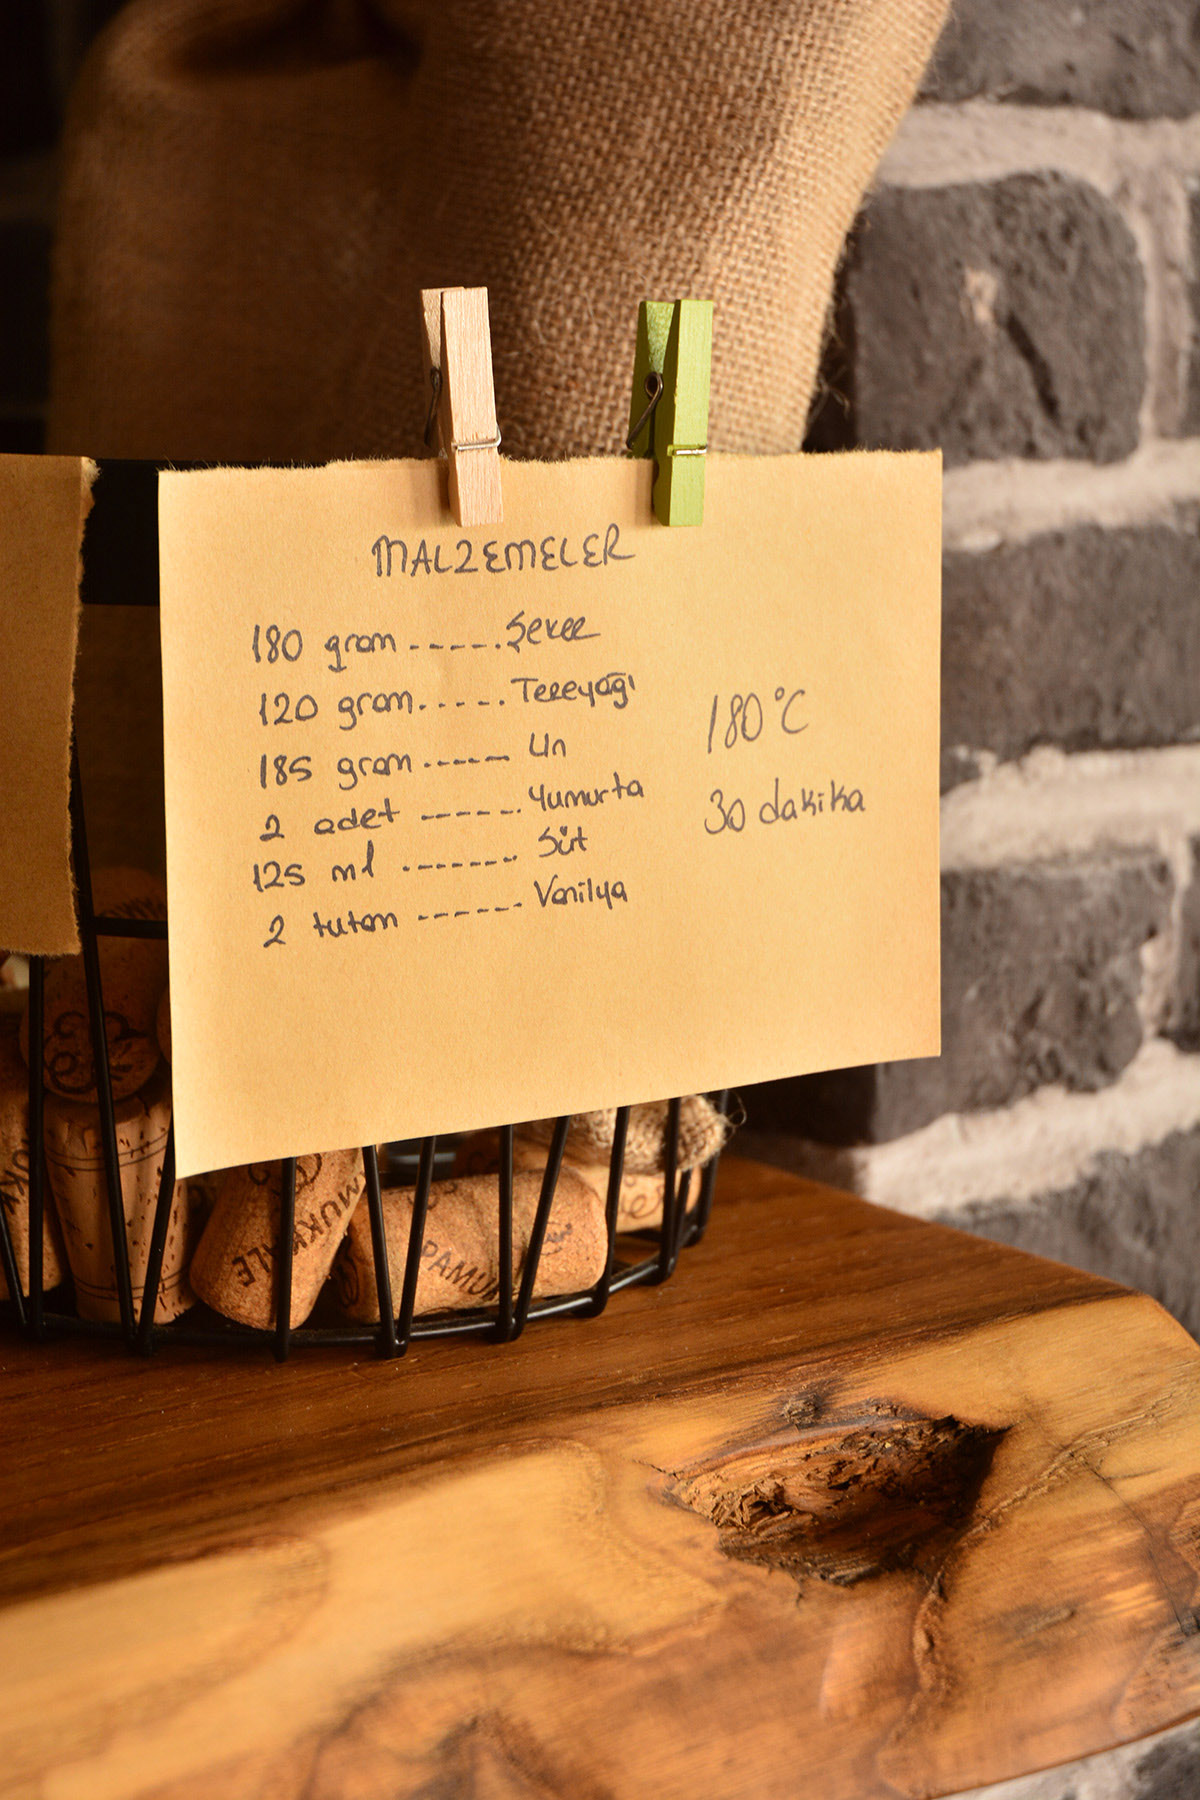 MALZEMELER
180 gram ------ Şeker
120 gram...... Tereyağı
185 gram ------ Un
2 adet ------- Yumurta
125 ml -------- Süt
2 tutam ------- Vanilya
180°C
30 dakika
PAMUK
MUKKALE